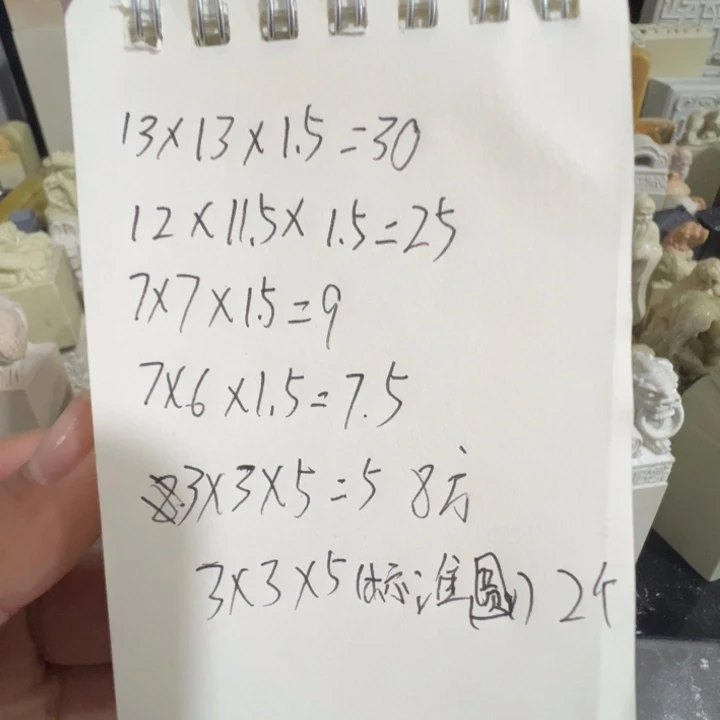 13×13×1.5=30
12×11.5×1.5=25
7×7×1.5=9
7×6×1.5=7.5
3×3×5=5 8方
3×3×5(标准圆) 2个